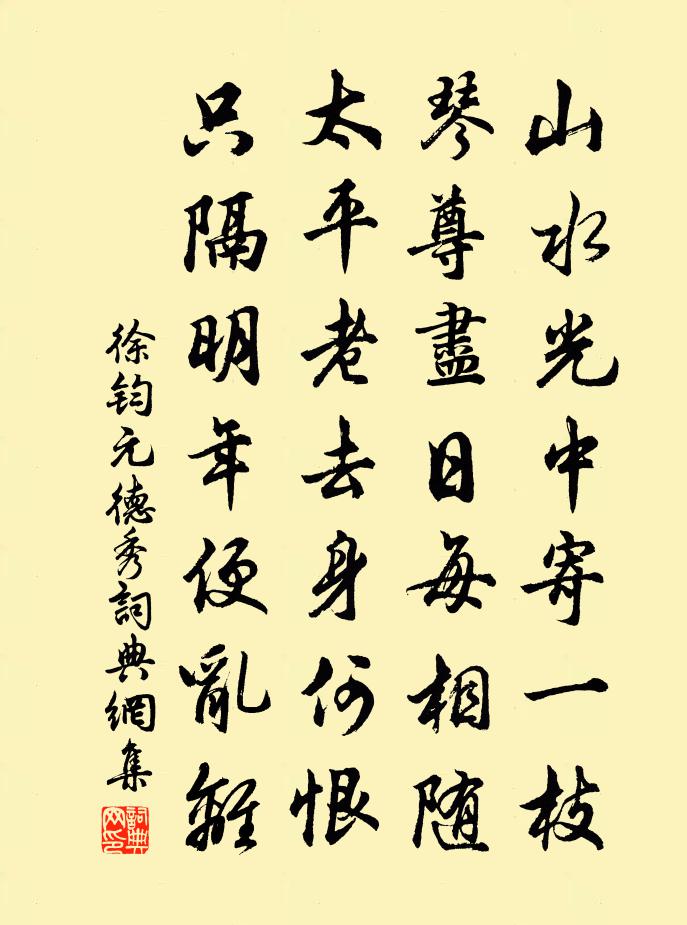 山水光中寄一枝
琴尊盡日每相随
太平老去身何恨
只隔明年便亂離
徐鈞元德秀詞典網集
詞典網印